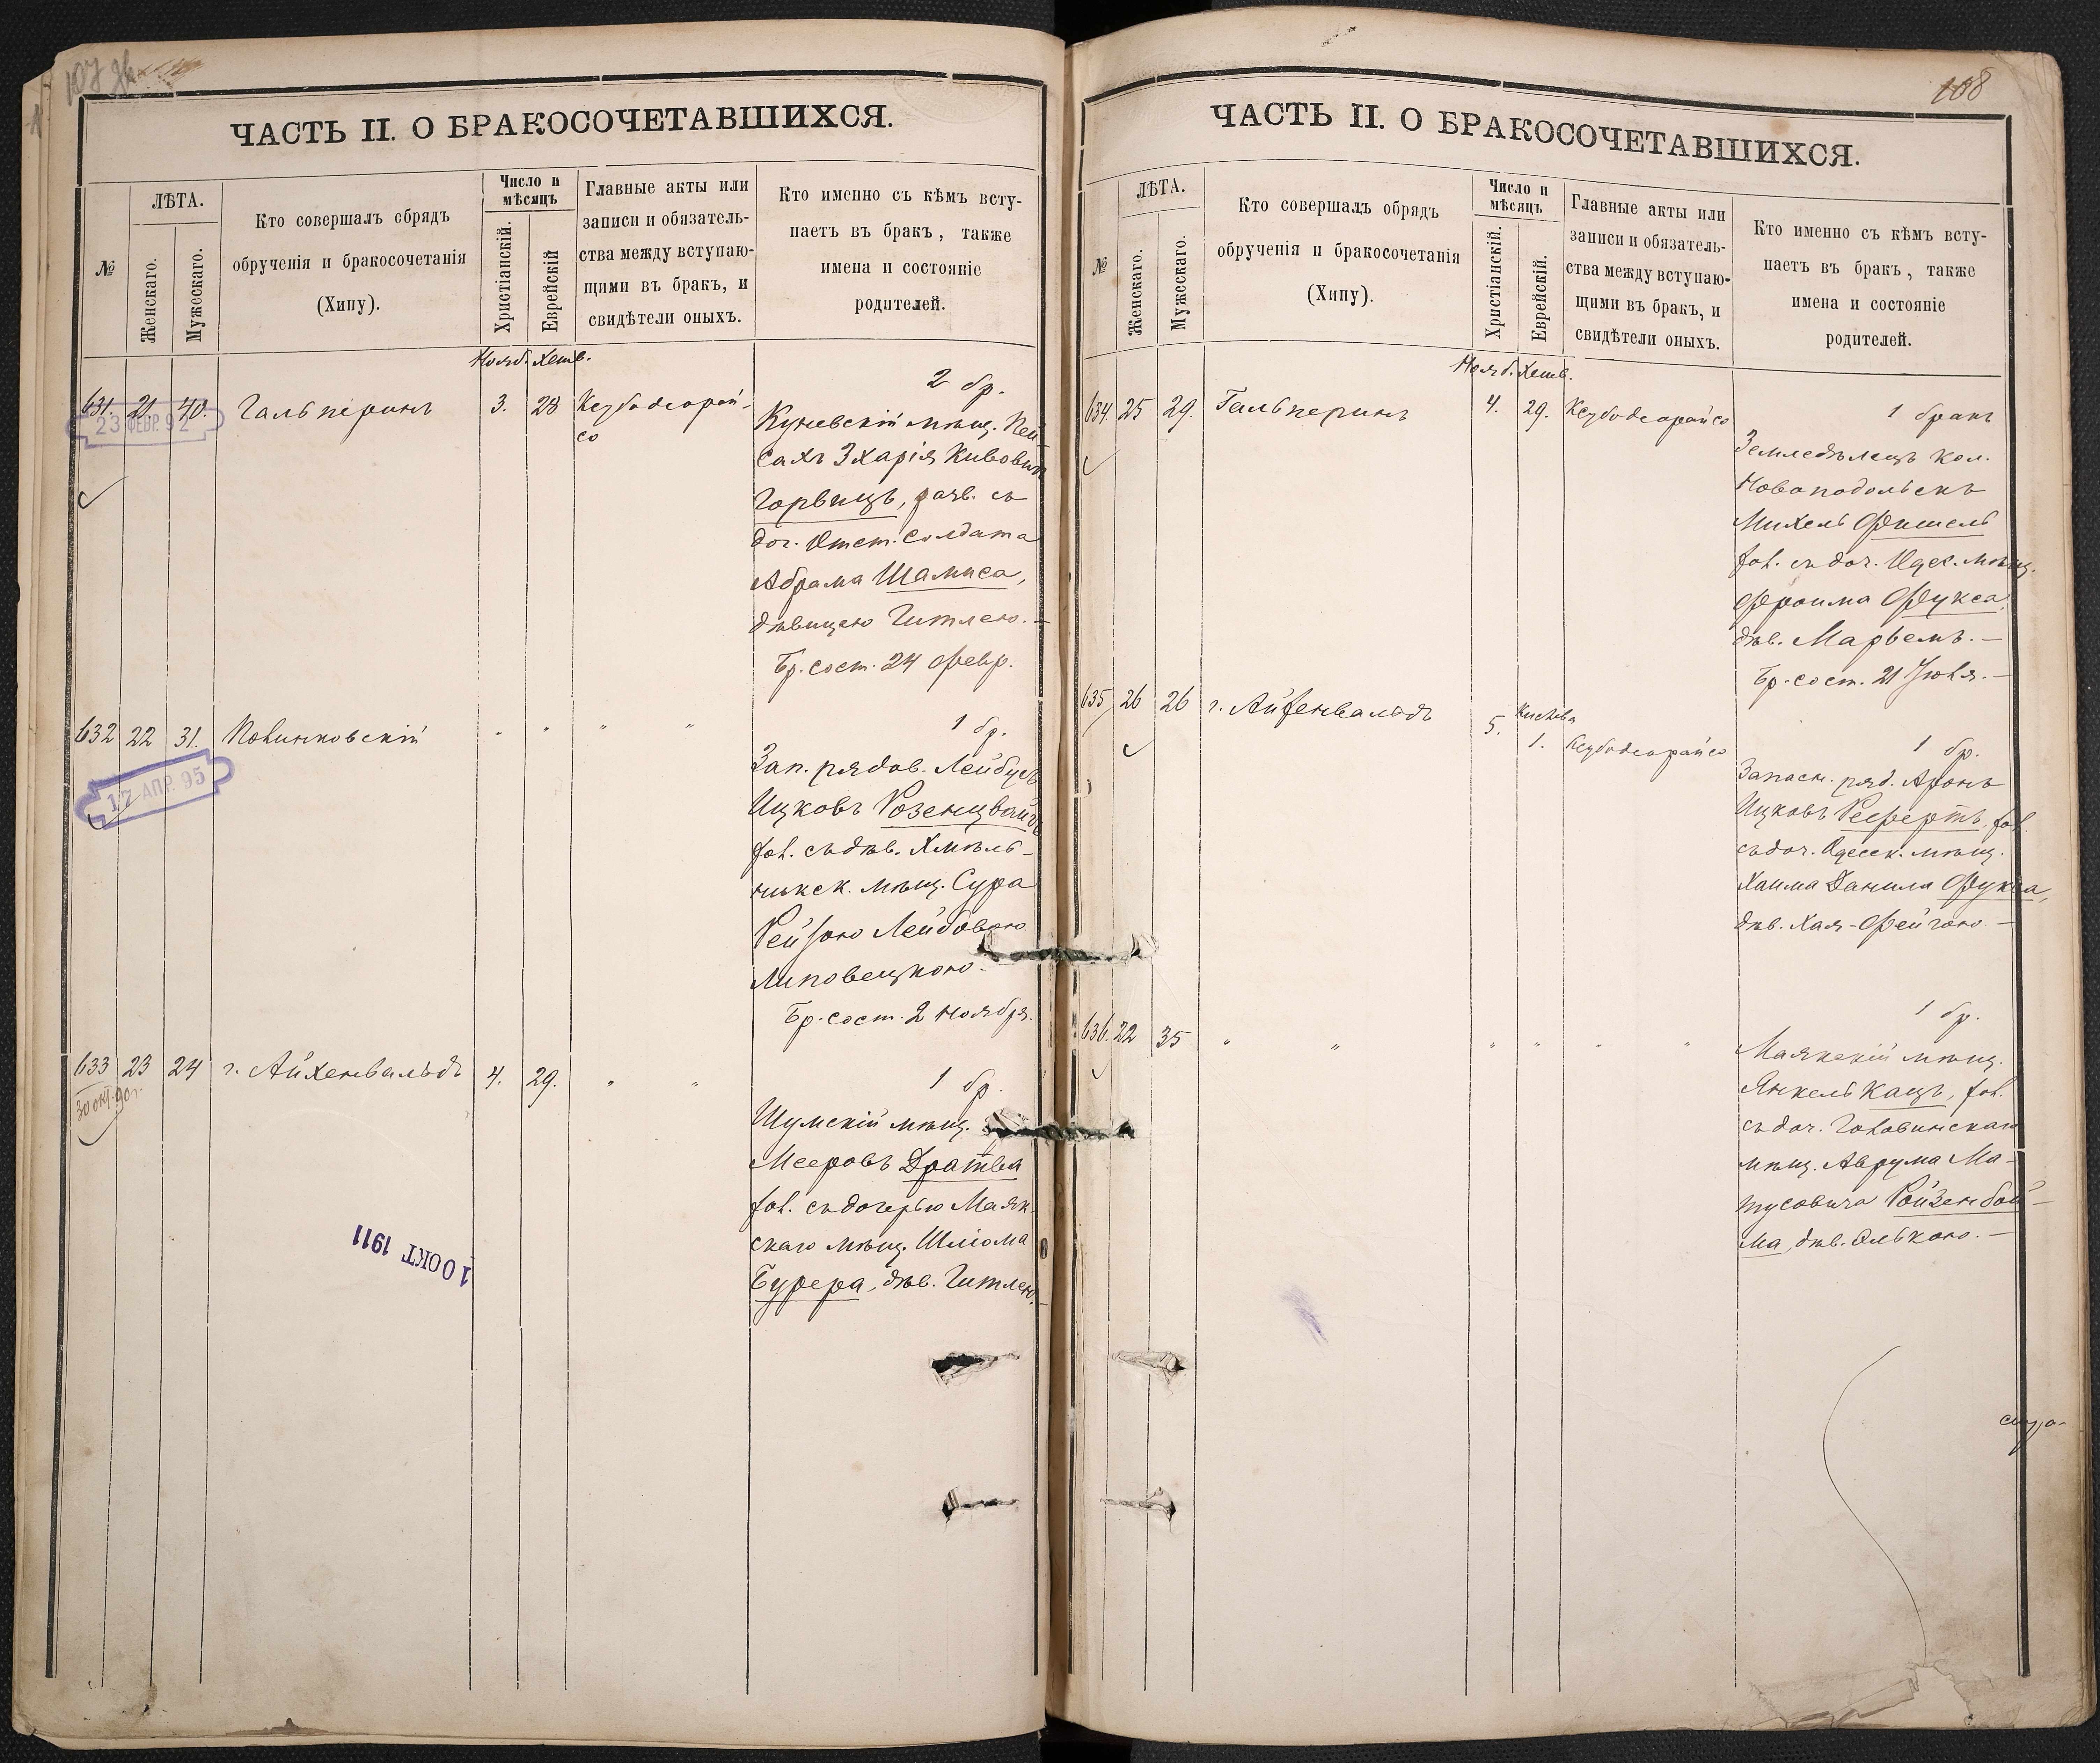 107 об
ЧАСТЬ II. О БРАКОСОЧЕТАВШИХСЯ.
№
ЛѢТА.
Женскаго.
Мужескаго.
Кто совершалъ обрядъ
обрученія и бракосочетанія
(Хипу).
Число и
мѣсяцъ
Христіанскій.
Еврейскій
Главные акты или
записи и обязатель-
ства между вступаю-
щими въ бракъ, и
свидѣтели оныхъ.
Кто именно съ кѣмъ всту-
паетъ въ бракъ, также
имена и состояніе
родителей.
Нояб. Хешв.
631. 21. 40. Гальперинъ 3. 28 Кезубосдеорай-
со
23 ФЕВР. 92
2 бр.
Куневскій мѣщ. Пей
сахъ Зхарія Кивовичъ
Горвицъ, разв. съ
доч. Отст. Солдата
Абрама Шамиса,
дѣвицею Гитлею. —
Бр. сост. 24 февр.
632 22 31. Полинковскій " " " "
17 АПР. 95
1 бр.
Зап. рядов. Лейбусъ
Ицковъ Розенцвайгъ
хол. съ дѣв. Хмѣль-
никск. мѣщ. Сура
Рейзою Лейбовою
Липовецкою.
Бр. сост. 2 Ноября.
633 23 24 г. Айхенвальдъ 4. 29. " "
30 окт. 90 г.
1 бр.
Шумскій мѣщ.
Мееровъ Дратва
хол. съ дочерью Маяк-
скаго мѣщ. Шліома
Бурера, дѣв. Гитлею.
10 ОКТ 1911
108
ЧАСТЬ II. О БРАКОСОЧЕТАВШИХСЯ.
№
ЛѢТА.
Женскаго.
Мужескаго.
Кто совершалъ обрядъ
обрученія и бракосочетанія
(Хипу).
Число и
мѣсяцъ
Христіанскій.
Еврейскій.
Главные акты или
записи и обязатель-
ства между вступаю-
щими въ бракъ, и
свидѣтели оныхъ.
Кто именно съ кѣмъ всту-
паетъ въ бракъ, также
имена и состояніе
родителей.
Нояб. Хешв.
634. 25 29. Гальперинъ 4. 29. Кезубосдеорайсо
1 бракъ
Земледѣлецъ кол.
Новоподольскъ
Михель Фишель
хол. съ доч. Одес. мѣщ.
Фроима Фукса,
дѣв. Марьемъ. —
Бр. сост. 21 Іюля. —
635 26 26 г. Айхенвальдъ 5. Кислева
1. Кезубосдеорайсо
1 бр.
Запасн. ряд. Аронъ
Ицковъ Рефертъ, хол.
съ доч. Одесск. мѣщ.
Хаима Данила Фукса,
дѣв. Хая-Фейгою —
636. 22 35 " " " " " "
1 бр.
Маякскій мѣщ.
Янкель Кацъ, хол.
съ доч. Голованскаго
мѣщ. Аврума Ма-
тусовича Ройзенбой-
ма, дѣв. Элькою. —